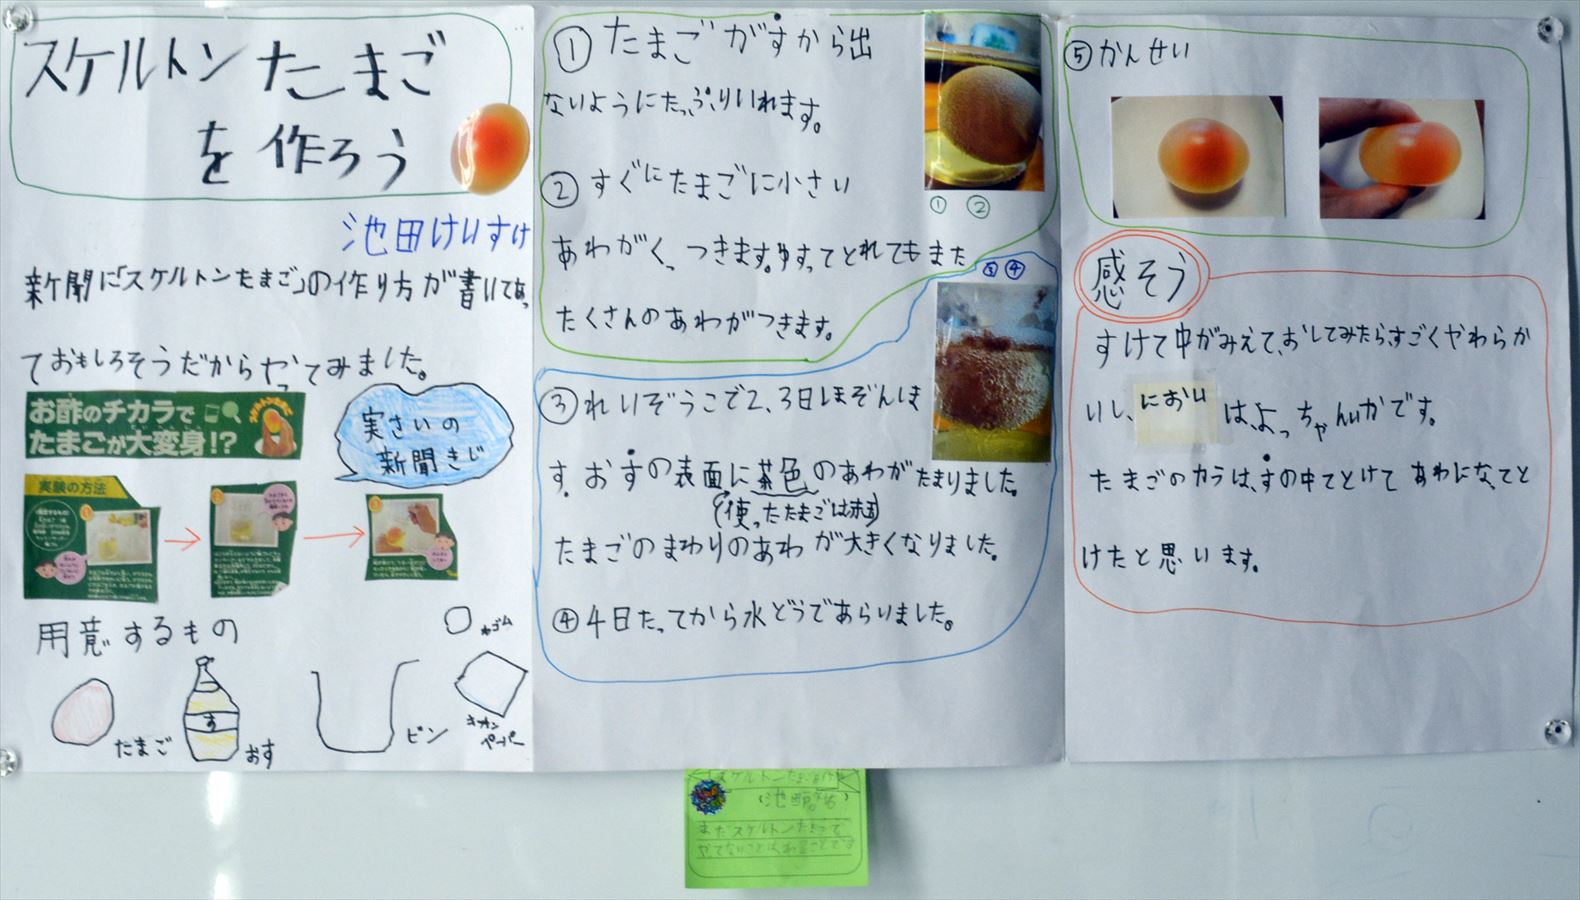 スケルトンたまご
を作ろう
池田けいすけ
新聞に「スケルトンたまご」の作り方が書いてあっ
ておもしろそうだからやってみました。
お酢のチカラで
たまごが大変身!?
スケルトンたまご
実さいの
新聞きじ
実験の方法
1
2
3
用意するもの
わゴム
たまご
す
おす
ビン
キッチン
ペーパー
① たまごがすから出
ないようにたっぷりいれます。
② すぐにたまごに小さい
あわがくっつきます。ゆすってとれてもまた
たくさんのあわがつきます。
① ②
③ ④
③ れいぞうこで2、3日ほぞんしま
す。おすの表面に茶色のあわがたまりました。
(使ったたまごは赤)
たまごのまわりのあわが大きくなりました。
④ 4日たってから水どうであらいました。
⑤ かんせい
感そう
すけて中がみえて、おしてみたら、すごくやわらか
いし、においは、よっちゃんいかです。
たまごのカラは、すの中でとけてあわになってと
けたと思います。
スケルトンたまご
まだスケルトンたまごで